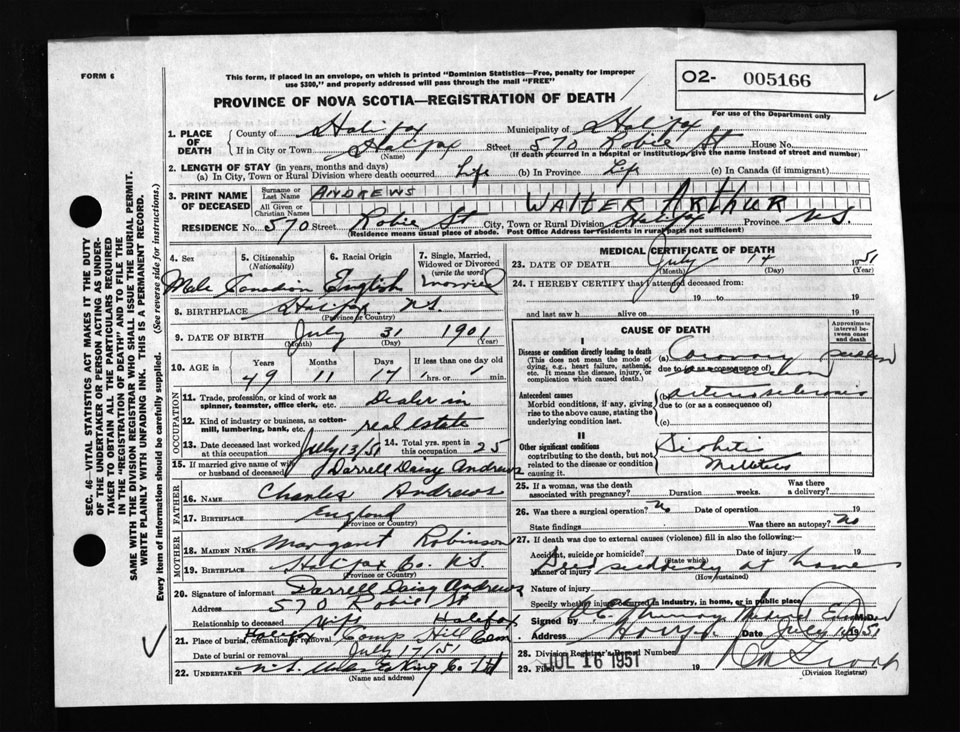 FORM 6
This form, if placed in an envelope, on which is printed "Dominion Statistics—Free, penalty for improper
use $300," and properly addressed will pass through the mail "FREE"
O2- 005166
For use of the Department only
PROVINCE OF NOVA SCOTIA—REGISTRATION OF DEATH
1. PLACE OF DEATH
County of Halifax Municipality of Halifax
If in City or Town Halifax Street 570 Robie St House No.
(Name) (If death occurred in a hospital or institution, give the name instead of street and number)
2. LENGTH OF STAY (in years, months and days)
(a) In City, Town or Rural Division where death occurred Life (b) In Province Life (c) In Canada (if immigrant)
3. PRINT NAME OF DECEASED
Surname or Last Name ANDREWS
All Given or Christian Names WALTER ARTHUR
RESIDENCE No. 570 Street Robie St City, Town or Rural Division Halifax Province N.S.
(Residence means usual place of abode. Post Office Address for residents in rural pages not sufficient)
4. Sex Male
5. Citizenship (Nationality) Canadian
6. Racial Origin English
7. Single, Married, Widowed or Divorced (write the word) married
8. BIRTHPLACE Halifax N.S.
(Province or Country)
9. DATE OF BIRTH July 31 1901
(Month) (Day) (Year)
10. AGE in Years Months Days If less than one day
49 11 17 hrs. or min.
OCCUPATION
11. Trade, profession, or kind of work as
spinner, teamster, office clerk, etc. Dealer in
12. Kind of industry or business, as cotton-
mill, lumbering, bank, etc. real estate
13. Date deceased last worked at this occupation July 13/51 14. Total yrs. spent in this occupation 25
15. If married give name of wife or husband of deceased Darrell Daisy Andrews
FATHER
16. NAME Charles Andrews
17. BIRTHPLACE England
(Province or Country)
MOTHER
18. MAIDEN NAME Margaret Robinson
19. BIRTHPLACE Halifax Co. N.S.
(Province or Country)
20. Signature of informant Darrell Daisy Andrews
Address 570 Robie St Halifax
Relationship to deceased Wife
21. Place of burial, cremation or removal Halifax Camp Hill Cem
Date of burial or removal July 17/51
22. UNDERTAKER N.S. Undertaking Co Ltd
(Name and address)
MEDICAL CERTIFICATE OF DEATH
23. DATE OF DEATH July 14 1951
(Month) (Day)
24. I HEREBY CERTIFY that I attended deceased from:
19 to 19
and last saw h alive on 19
CAUSE OF DEATH
Approximate interval between onset and death
I
Disease or condition directly leading to death (a) Coronary sudden
(This does not mean the mode of dying, e.g., heart failure, asthenia, etc. It means the disease, injury, or complication which caused death.)
due to (or as a consequence of)
Antecedent causes (b) arteriosclerosis
Morbid conditions, if any, giving rise to the above cause, stating the underlying condition last.
due to (or as a consequence of)
(c)
II
Other significant conditions
contributing to the death, but not related to the disease or condition causing it.
Diabetis
Mellitus
25. If a woman, was the death associated with pregnancy? Duration weeks. Was there a delivery?
26. Was there a surgical operation? No Date of operation 19
State findings Was there an autopsy? No
27. If death was due to external causes (violence) fill in also the following:
Accident, suicide or homicide? Date of injury 19
(State which)
Manner of injury Died suddenly at home
(How sustained)
Nature of injury
Specify whether injury occurred in industry, in home, or in public place
Signed by M.D.
Address Date July 1951
28. Division Registrar's Record Number
29. Filed JUL 16 1951 19
(Division Registrar)
SEC. 46—VITAL STATISTICS ACT MAKE IT THE DUTY
OF THE UNDERTAKER OR PERSON ACTING AS UNDER-
TAKER TO OBTAIN ALL THE PARTICULARS REQUIRED
IN THE "REGISTRATION OF DEATH" AND TO FILE THE
SAME WITH THE DIVISION REGISTRAR WHO SHALL ISSUE THE BURIAL PERMIT.
WRITE PLAINLY WITH UNFADING INK. THIS IS A PERMANENT RECORD.
Every item of information should be carefully supplied. (See reverse side for instructions.)